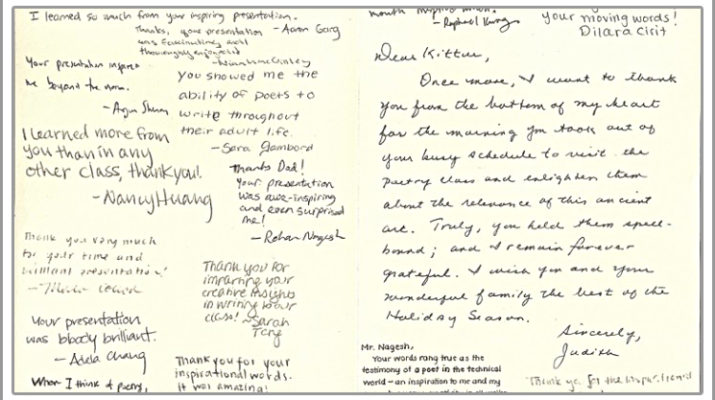 I learned so much from your inspiring presentation.
- Aaron Garg
Thanks, your presentation
was fascinating and
thoroughly enjoyed
Your presentation inspired
me beyond the norm.
- Arjun
You showed me the
ability of poets to
write throughout
their adult life.
- Sara Gambord
I learned more from
you than in any
other class, thank you!
- Nancy Huang
Thanks Dad!
Your presentation
was awe-inspiring
and even surprised
me!
- Rohan Nagesh
Thank you very much
for your time and
brilliant presentation!
Thank you for
imparting your
creative insights
in writing to our
class!
~Sarah
Tang
Your presentation
was bloody brilliant.
- Adela Chang
Thank you for your
inspirational words.
It was amazing!
When I think of poetry,
- Raphael
your moving words!
Dilara Cirit
Dear Kittur,
Once more, I want to thank
you from the bottom of my heart
for the morning you took out of
your busy schedule to visit the
poetry class and enlighten them
about the relevance of this ancient
art. Truly, you held them spell-
bound; and I remain forever
grateful. I wish you and your
wonderful family the best of the
Holiday Season.
Sincerely,
Judith
Mr. Nagesh,
Your words rang true as the
testimony of a poet in the technical
world - an inspiration to me and my
Thank you for the